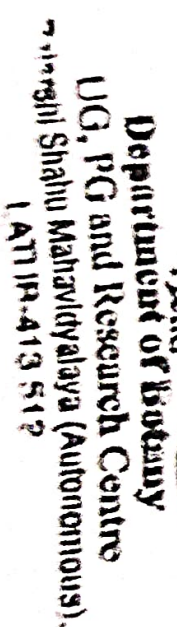 Department of Botany
UG, PG and Research Centre
Shahu Mahavidyalaya (Autonomous),
LATUR-413 512